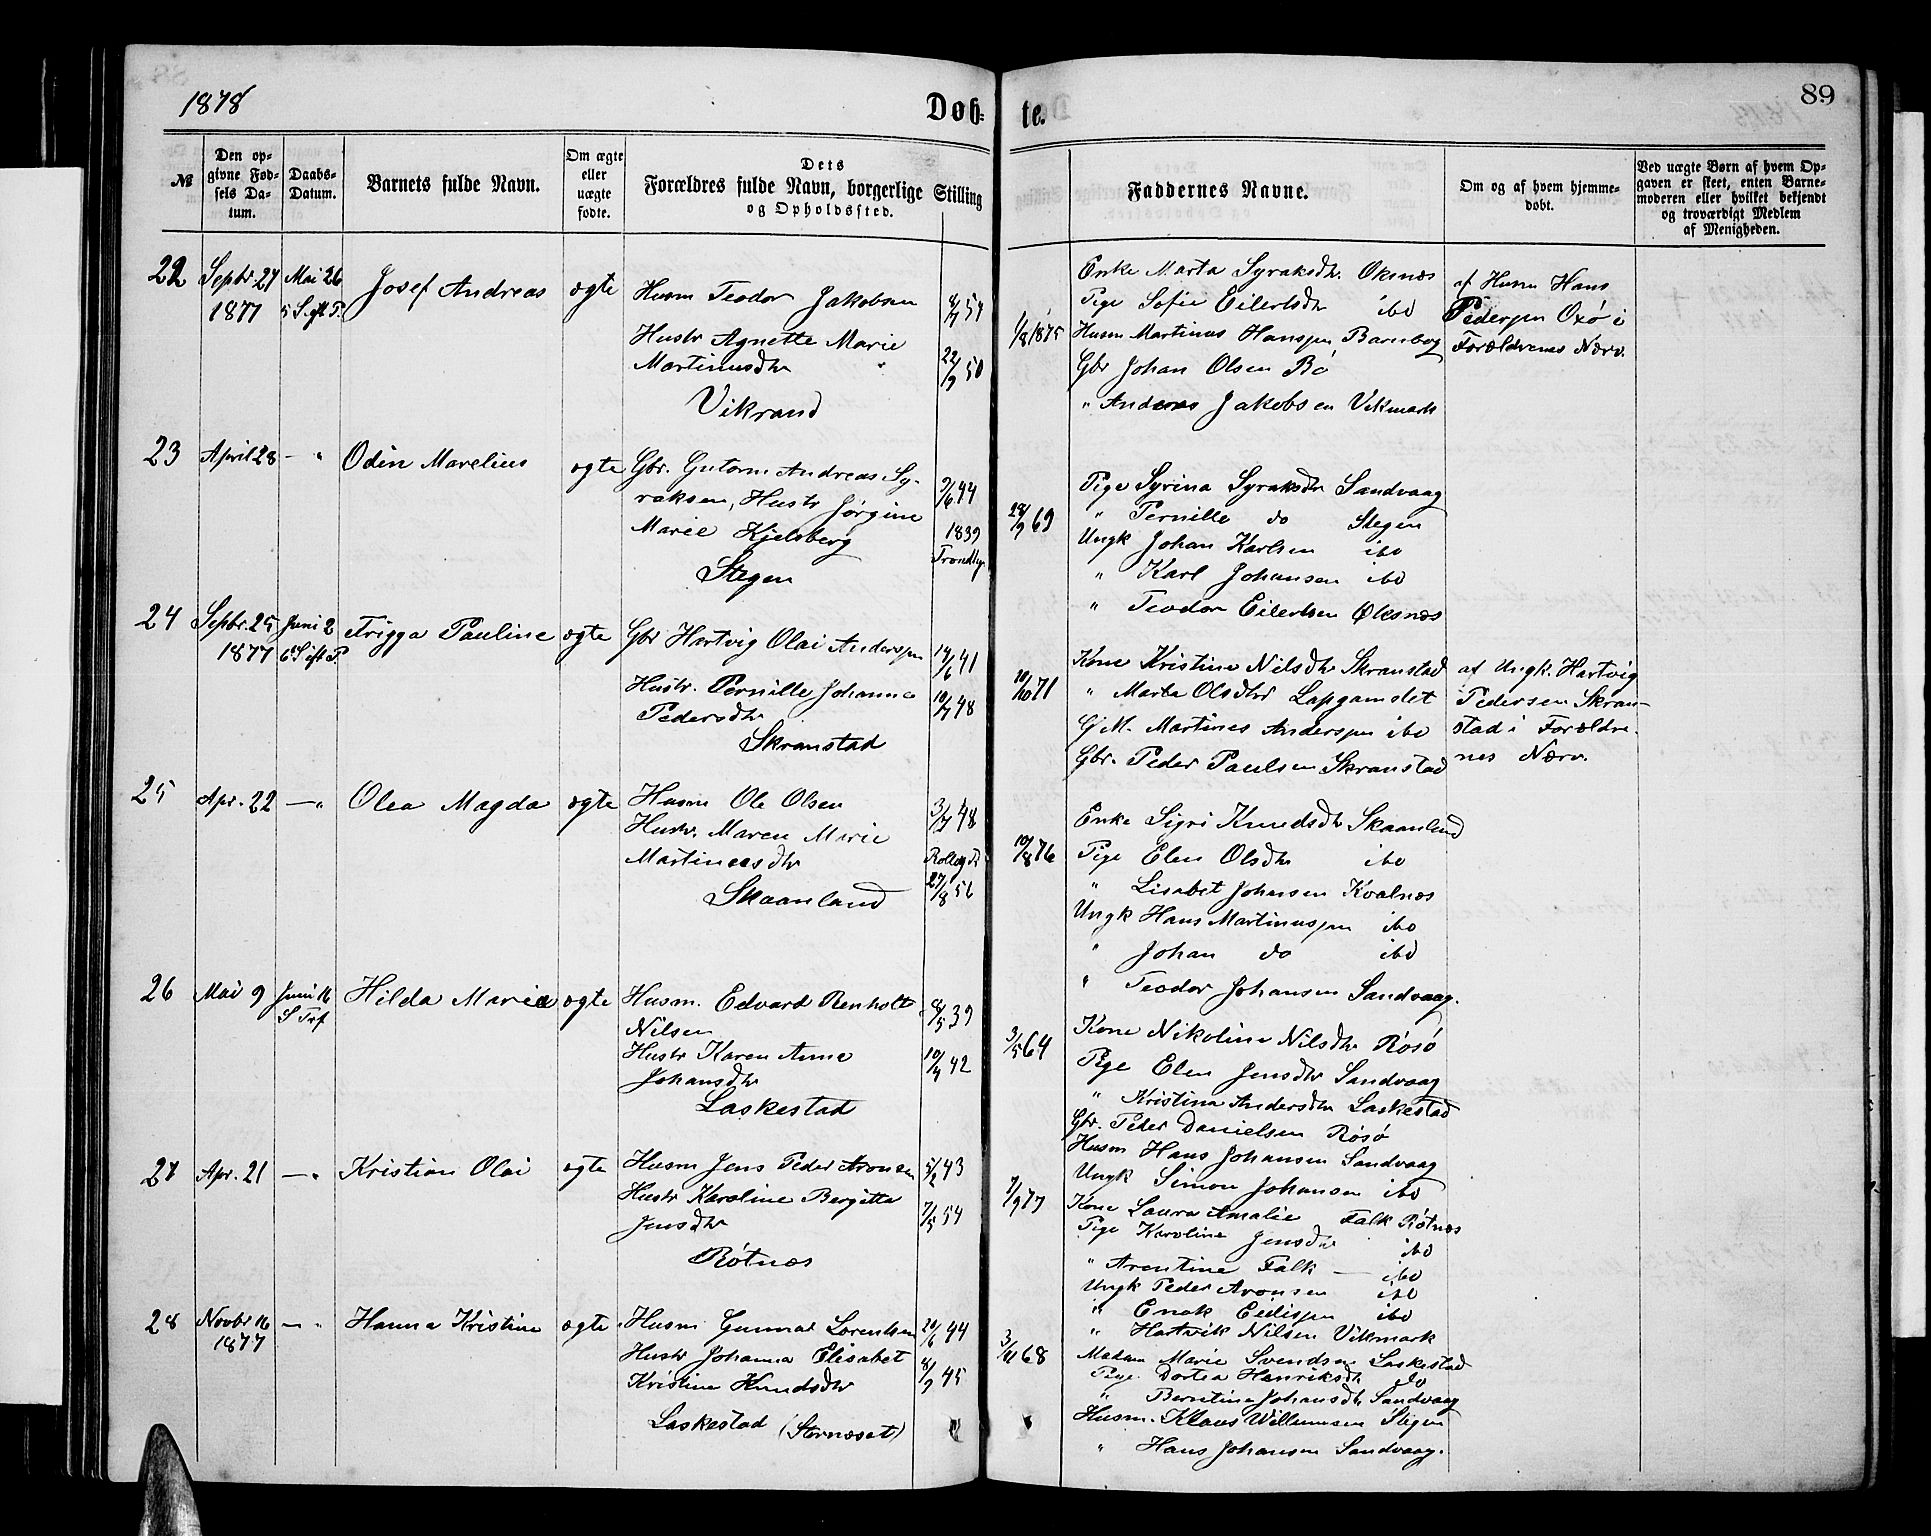 1878
Døb-
te.
89
№
Den op-
givne Fød-
sels Da-
tum.
Daabs-
Datum.
Barnets fulde Navn.
Om ægte
eller
uægte
fødte.
Dets
Forældres fulde Navn, borgerlige Stilling
og Opholdssted.
Faddernes Navne.
Om og af hvem hjemme-
døbt.
Ved uægte Børn af hvem Op-
gaven er skeet, enten Barne-
moderen eller hvilket bekjendt
og troværdigt Medlem
af Menigheden.
22
Septbr. 27
1877
Mai 26
5 S. eft P.
Josef Andreas
ægte
Husm Teodor Jakobsen
Hustr Agnette Marie
Martinusdtr
Vikrand
22/9 50
1/8 1875
Enke Marta Syraksdtr. Øksnæs
Pige Sofie Eilertsdtr ibd
Husm Martinus Hanssen Barnbog
Gbr Johan Olsen Bø
" Andreas Jakobsen Vikmark
af Husm Hans
Pederssen Oxø i
Forældrenes Nærv.
23
April 28
— "
Odin Marelius
ægte
Gbr. Gutorm Andreas Sy-
raksen, Hustr Jørgine
Marie Kjelsberg
Stegen
9/6 44
1839
Trondhj.
28/9 69
Pige Syrina Syraksdtr Sandvaag
" Pernille do Stegen
Ungk Johan Karlsen ibd
" Karl Johansen ibd
" Teodor Eilertsen Øksnæs
24
Septbr. 25
1877
Juni 2
6 S eft P.
Frigga Pauline
ægte
Gbr Hartvig Olai Anderssen
Hustr. Pernille Johanna
Pedersdtr
Skranstad
14/6 41
10/7 48
10/10 71
Kone Kristine Nilsdtr Skranstad
" Marta Olsdtr Lapgamslet
G M. Martines Anderssen ibd
Gbr. Peder Paulsen Skranstad
af Ungk. Hartvig
Pedersen Skran-
stad i Forældre-
nes Nærv.
25
Apr. 22
— "
Olea Magda
ægte
Husm Ole Olsen
Hustr. Maren Marie
Martineasdtr
Skaanland
3/7 48
27/8 56
10/8 76
Enke Sigri Knudsdtr Skaanland
Pige Elen Olsdtr ibd
" Lisabet Johansen Kvalnæs
Ungk Hans Martinussen ibd
" Johan do ibd
" Teodor Johansen Sandvaag.
26
Mai 9
Juni 16
S Tref
Hilda Maria
ægte
Husm. Edvard Renholt
Nilsen
Hustr Karen Anne
Johansdtr
Laskestad
8/5 39
10/4 42
3/5 64
Kone Nikoline Nilsdtr Røsø
Pige Elen Jensdtr Sandvaag
" Kristina Andersdtr Laskestad
Gbr. Peder Danielsen Røsø
Husm Hans Johansen Sandvaag
Ungk Simon Johansen ibd
27
Apr. 21
— "
Kristian Olai
ægte
Husm Jens Peder Aronsen
Hustr Karoline Bergitta
Jensdtr
Røtnæs
5/2 43
7/5 54
7/9 77
Kone Laura Amalie Falk Røtnæs
Pige Karoline Jensdtr ibd
" Arentine Falk — ibd
Ungk Peder Aronsen ibd
" Enok Eedissen ibd
" Hartvik Nilsen Vikmark
28
Novbr 16
1877
— "
Hanna Kristine
ægte
Husm Gunnar Lorentsen
Hustr Johanna Elisabet
Kristine Knudsdtr
Laskestad (Stornæset)
20/6 44
8/9 45
3/11 68
Madam Marie Svendsen Laskestad
Pige Dortea Henriksdtr do
" Berntina Johansdtr Sandvaag
Husm. Klaus Willumsen Stegen
" Hans Johansen Sandvaag.